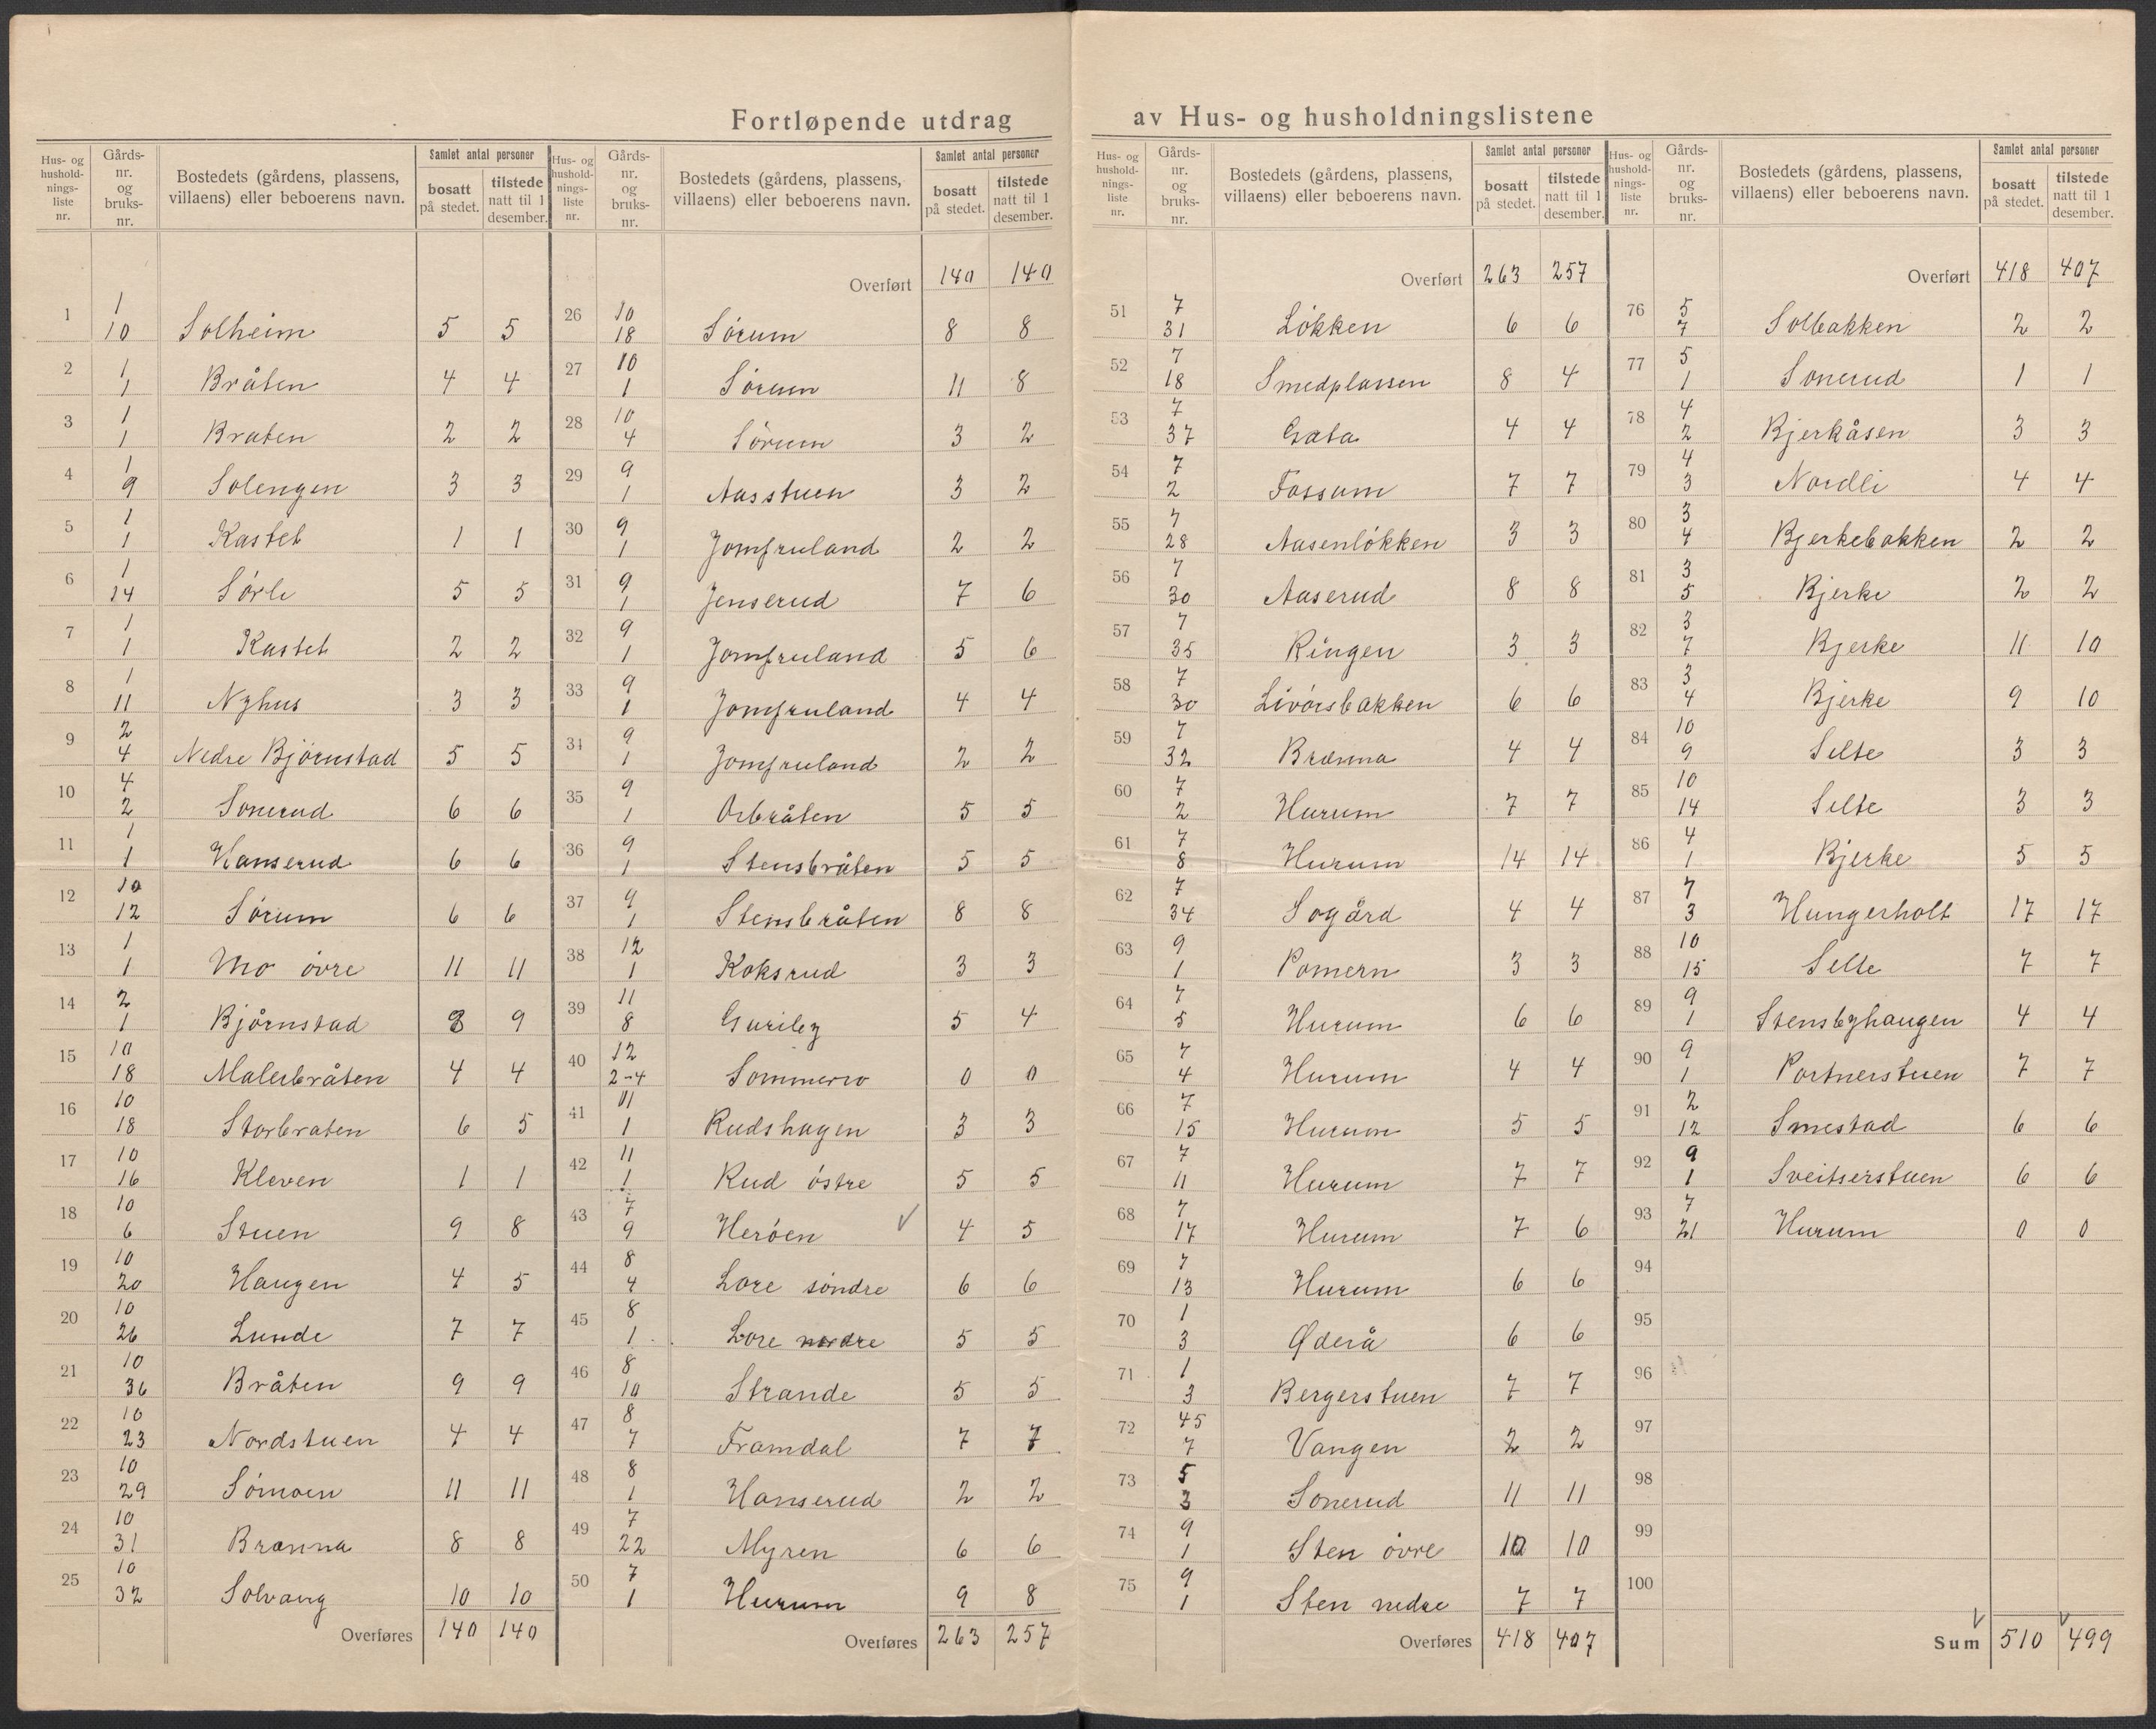 Fortløpende utdrag av Hus- og husholdningslistene
Hus- og husholdnings-liste nr. | Gårds-nr. og bruks-nr. | Bostedets (gårdens, plassens, villaens) eller beboerens navn. | Samlet antal personer bosatt på stedet. | tilstede natt til 1 desember.
1 | 1 10 | Solheim | 5 | 5
2 | 1 1 | Bråten | 4 | 4
3 | 1 1 | Braten | 2 | 2
4 | 1 9 | Solengen | 3 | 3
5 | 1 1 | Kastet | 1 | 1
6 | 1 14 | Sørli | 5 | 5
7 | 1 1 | Kastet | 2 | 2
8 | 1 11 | Nyhus | 3 | 3
9 | 2 4 | Nedre Bjørnstad | 5 | 5
10 | 4 2 | Sonerud | 6 | 6
11 | 1 1 | Hanserud | 6 | 6
12 | 10 12 | Sørum | 6 | 6
13 | 1 1 | Mo øvre | 11 | 11
14 | 2 1 | Bjørnstad | 8 | 9
15 | 10 18 | Malerbråten | 4 | 4
16 | 10 18 | Storbraten | 6 | 5
17 | 10 16 | Kleven | 1 | 1
18 | 10 6 | Stuen | 9 | 8
19 | 10 20 | Haugen | 4 | 5
20 | 10 26 | Lunde | 7 | 7
21 | 10 36 | Bråten | 9 | 9
22 | 10 23 | Nordstuen | 4 | 4
23 | 10 29 | Sømoen | 11 | 11
24 | 10 31 | Brænna | 8 | 8
25 | 10 32 | Solvang | 10 | 10
Overføres | 140 | 140
Hus- og husholdnings-liste nr. | Gårds-nr. og bruks-nr. | Bostedets (gårdens, plassens, villaens) eller beboerens navn. | Samlet antal personer bosatt på stedet. | tilstede natt til 1 desember.
Overført | 140 | 140
26 | 10 18 | Sørum | 8 | 8
27 | 10 1 | Sørum | 11 | 8
28 | 10 4 | Sørum | 3 | 2
29 | 9 1 | Aasstuen | 3 | 2
30 | 9 1 | Jomfruland | 2 | 2
31 | 9 1 | Jenserud | 7 | 6
32 | 9 1 | Jomfruland | 5 | 6
33 | 9 1 | Jomfruland | 4 | 4
34 | 9 1 | Jomfruland | 2 | 2
35 | 9 1 | Orbråten | 5 | 5
36 | 9 1 | Stensbråten | 5 | 5
37 | 9 1 | Stensbråten | 8 | 8
38 | 12 1 | Koksrud | 3 | 3
39 | 11 8 | Guriby | 5 | 4
40 | 12 2-4 | Sommerro | 0 | 0
41 | 11 1 | Rudshagen | 3 | 3
42 | 11 1 | Rud østre | 5 | 5
43 | 7 9 | Herøen ✓ | 4 | 5
44 | 8 4 | Lore søndre | 6 | 6
45 | 8 1 | Lore nordre | 5 | 5
46 | 8 10 | Strande | 5 | 5
47 | 8 7 | Framdal | 7 | 7
48 | 8 1 | Hanserud | 2 | 2
49 | 7 22 | Myren | 6 | 6
50 | 7 1 | Hurum | 9 | 8
Overføres | 263 | 257
Hus- og husholdnings-liste nr. | Gårds-nr. og bruks-nr. | Bostedets (gårdens, plassens, villaens) eller beboerens navn. | Samlet antal personer bosatt på stedet. | tilstede natt til 1 desember.
Overført | 263 | 257
51 | 7 31 | Løkken | 6 | 6
52 | 7 18 | Smedplassen | 8 | 4
53 | 7 37 | Gata | 4 | 4
54 | 7 2 | Fossum | 7 | 7
55 | 7 28 | Aasenløkken | 3 | 3
56 | 7 30 | Aaserud | 8 | 8
57 | 7 35 | Ringen | 3 | 3
58 | 7 30 | Livorsbakken | 6 | 6
59 | 7 32 | Brænna | 4 | 4
60 | 7 2 | Hurum | 7 | 7
61 | 7 8 | Hurum | 14 | 14
62 | 7 34 | Sogård | 4 | 4
63 | 9 1 | Pomern | 3 | 3
64 | 7 5 | Hurum | 6 | 6
65 | 7 4 | Hurum | 4 | 4
66 | 7 15 | Hurum | 5 | 5
67 | 7 11 | Hurum | 7 | 7
68 | 7 17 | Hurum | 7 | 6
69 | 7 13 | Hurum | 6 | 6
70 | 1 3 | Øderå | 6 | 6
71 | 1 3 | Bergerstuen | 7 | 7
72 | 45 7 | Vangen | 2 | 2
73 | 5 3 | Sonerud | 11 | 11
74 | 9 1 | Sten øvre | 10 | 10
75 | 9 1 | Sten nedre | 7 | 7
Overføres | 418 | 407
Hus- og husholdnings-liste nr. | Gårds-nr. og bruks-nr. | Bostedets (gårdens, plassens, villaens) eller beboerens navn. | Samlet antal personer bosatt på stedet. | tilstede natt til 1 desember.
Overført | 418 | 407
76 | 5 7 | Solbakken | 2 | 2
77 | 5 1 | Sonerud | 1 | 1
78 | 4 2 | Bjerkåsen | 3 | 3
79 | 4 3 | Nordli | 4 | 4
80 | 3 4 | Bjerkebakken | 2 | 2
81 | 3 5 | Bjerke | 2 | 2
82 | 3 7 | Bjerke | 11 | 10
83 | 3 4 | Bjerke | 9 | 10
84 | 10 9 | Selte | 3 | 3
85 | 10 14 | Selte | 3 | 3
86 | 4 1 | Bjerke | 5 | 5
87 | 7 3 | Hungerholt | 17 | 17
88 | 10 15 | Selte | 7 | 7
89 | 9 1 | Stensbyhaugen | 4 | 4
90 | 9 1 | Portnerstuen | 7 | 7
91 | 2 12 | Smestad | 6 | 6
92 | 9 1 | Sveitserstuen | 6 | 6
93 | 7 21 | Hurum | 0 | 0
94
95
96
97
98
99
100
Sum | 510 | 499